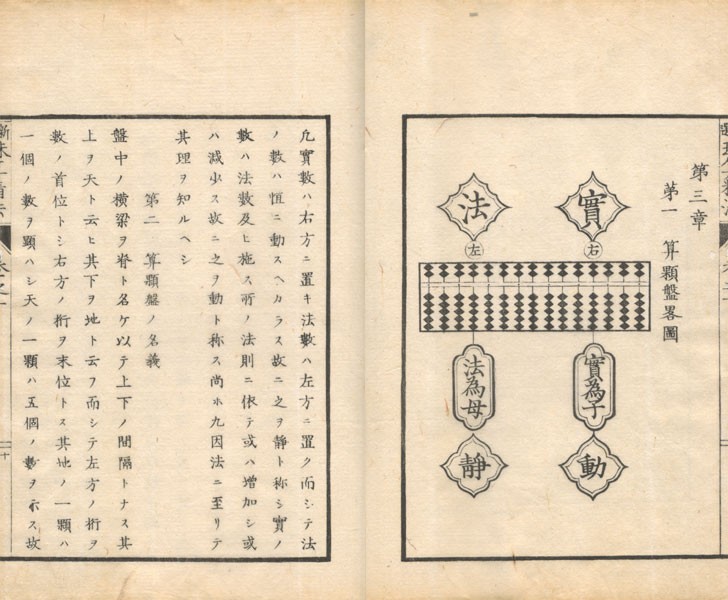 第三章
苐一 算顆盤畧圖
實
右
實為子
動
法
左
法為母
靜
凡實數ハ右方ニ置キ法數ハ左方ニ置ク而シテ法
ノ數ハ恒ニ動スヘカラス故ニ之ヲ静ト称シ實ノ
數ハ法數及ヒ施ス所ノ法則ニ依テ或ハ增加シ或
ハ減少ス故ニ之ヲ動ト称ス尚ホ九因法ニ至リテ
其理ヲ知ルヘシ
第二 算顆盤ノ名義
盤中ノ横梁ヲ脊ト名ケ以テ上下ノ間隔トナス其
上ヲ天ト云ヒ其下ヲ地ト云フ而シテ左方ノ桁ヲ
數ノ首位トシ右方ノ桁ヲ末位トス其地ノ一顆ハ
一個ノ數ヲ顕ハシ天ノ一顆ハ五個ノ數ヲ示ス故